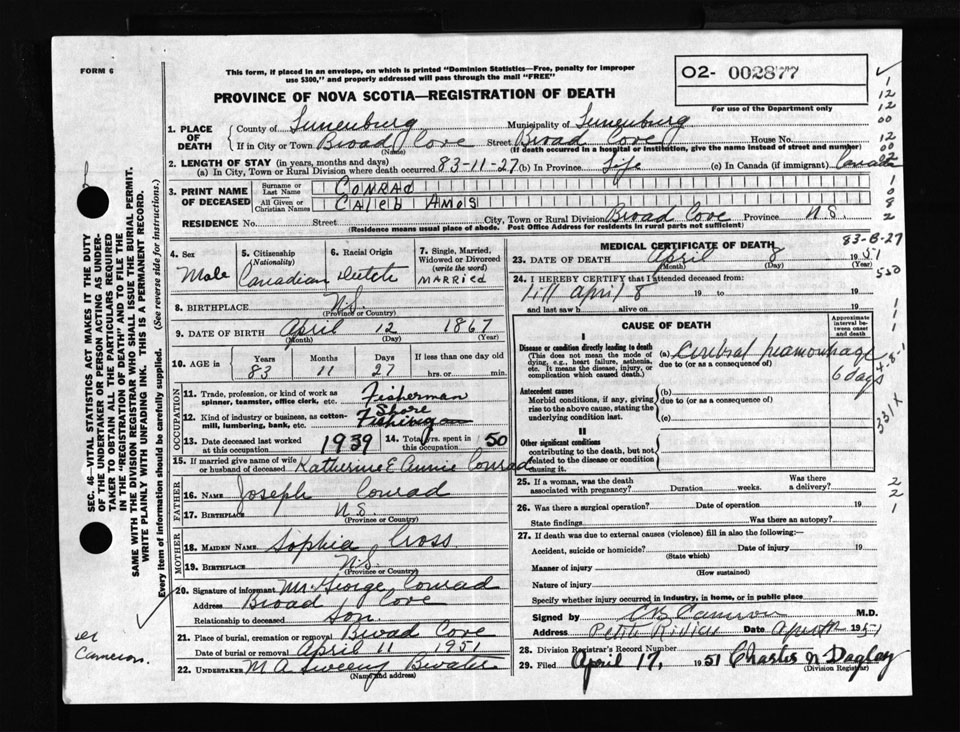 FORM 6
This form, if placed in an envelope, on which is printed "Dominion Statistics—Free, penalty for improper
use $300," and properly addressed will pass through the mail "FREE"
O2- 002877
For use of the Department only
PROVINCE OF NOVA SCOTIA—REGISTRATION OF DEATH
1. PLACE OF DEATH
County of Lunenburg Municipality of Lunenburg
If in City or Town Broad Cove Street Broad Cove House No.
(Name) (If death occurred in a hospital or institution, give the name instead of street and number)
2. LENGTH OF STAY (in years, months and days)
(a) In City, Town or Rural Division where death occurred 83-11-27 (b) In Province Life (c) In Canada (if immigrant) Canada
3. PRINT NAME OF DECEASED
Surname or Last Name CONRAD
All Given or Christian Names CALEB AMOS
RESIDENCE No. Street City, Town or Rural Division Broad Cove Province N.S.
(Residence means usual place of abode. Post Office Address for residents in rural parts not sufficient)
4. Sex Male
5. Citizenship (Nationality) Canadian
6. Racial Origin Dutch
7. Single, Married, Widowed or Divorced (write the word) MARRIED
8. BIRTHPLACE N.S.
(Province or Country)
9. DATE OF BIRTH April 12 1867
(Month) (Day) (Year)
10. AGE in Years Months Days If less than one day old
83 11 27 hrs. or min.
OCCUPATION
11. Trade, profession, or kind of work as spinner, teamster, office clerk, etc. Fisherman
12. Kind of industry or business, as cotton-mill, lumbering, bank, etc. Shore Fishing
13. Date deceased last worked at this occupation 1939
14. Total yrs. spent in this occupation 50
15. If married give name of wife or husband of deceased Katherine E Annie Conrad
FATHER
16. Name Joseph Conrad
17. Birthplace N.S.
(Province or Country)
MOTHER
18. Maiden Name Sophia Cross
19. Birthplace N.S.
(Province or Country)
20. Signature of informant Mr George Conrad
Address Broad Cove
Relationship to deceased Son.
21. Place of burial, cremation or removal Broad Cove
Date of burial or removal April 11 1951
22. UNDERTAKER M A Sweeny Bwater
(Name and address)
MEDICAL CERTIFICATE OF DEATH
23. DATE OF DEATH April 8 1951
(Month) (Day) (Year)
24. I HEREBY CERTIFY that I attended deceased from:
till April 8 19 to 19
and last saw h alive on 19
CAUSE OF DEATH
Approximate interval between onset and death
I
Disease or condition directly leading to death
(This does not mean the mode of dying, e.g., heart failure, asthenia, etc. It means the disease, injury, or complication which caused death.)
(a) Cerebral Heamorrhage
due to (or as a consequence of)
6 days
Antecedent causes
Morbid conditions, if any, giving rise to the above cause, stating the underlying condition last.
(b)
due to (or as a consequence of)
(c)
II
Other significant conditions
contributing to the death, but not related to the disease or condition causing it.
25. If a woman, was the death associated with pregnancy? Duration weeks. Was there a delivery?
26. Was there a surgical operation? Date of operation 19
State findings Was there an autopsy?
27. If death was due to external causes (violence) fill in also the following:—
Accident, suicide or homicide? Date of injury 19
(State which)
Manner of injury
(How sustained)
Nature of injury
Specify whether injury occurred in industry, in home, or in public place
Signed by C B Cameron M.D.
Address Petite Riviere Date April 1951
28. Division Registrar's Record Number
29. Filed April 17, 1951 Charles N Daglay
(Division Registrar)
SEC. 46—VITAL STATISTICS ACT MAKES IT THE DUTY
OF THE UNDERTAKER OR PERSON ACTING AS UNDER-
TAKER TO OBTAIN ALL THE PARTICULARS REQUIRED
IN THE "REGISTRATION OF DEATH" AND TO FILE THE
SAME WITH THE DIVISION REGISTRAR WHO SHALL ISSUE THE BURIAL PERMIT.
WRITE PLAINLY WITH UNFADING INK. THIS IS A PERMANENT RECORD.
Every item of information should be carefully supplied. (See reverse side for instructions.)
Cameron.
83-8-27
550
331X